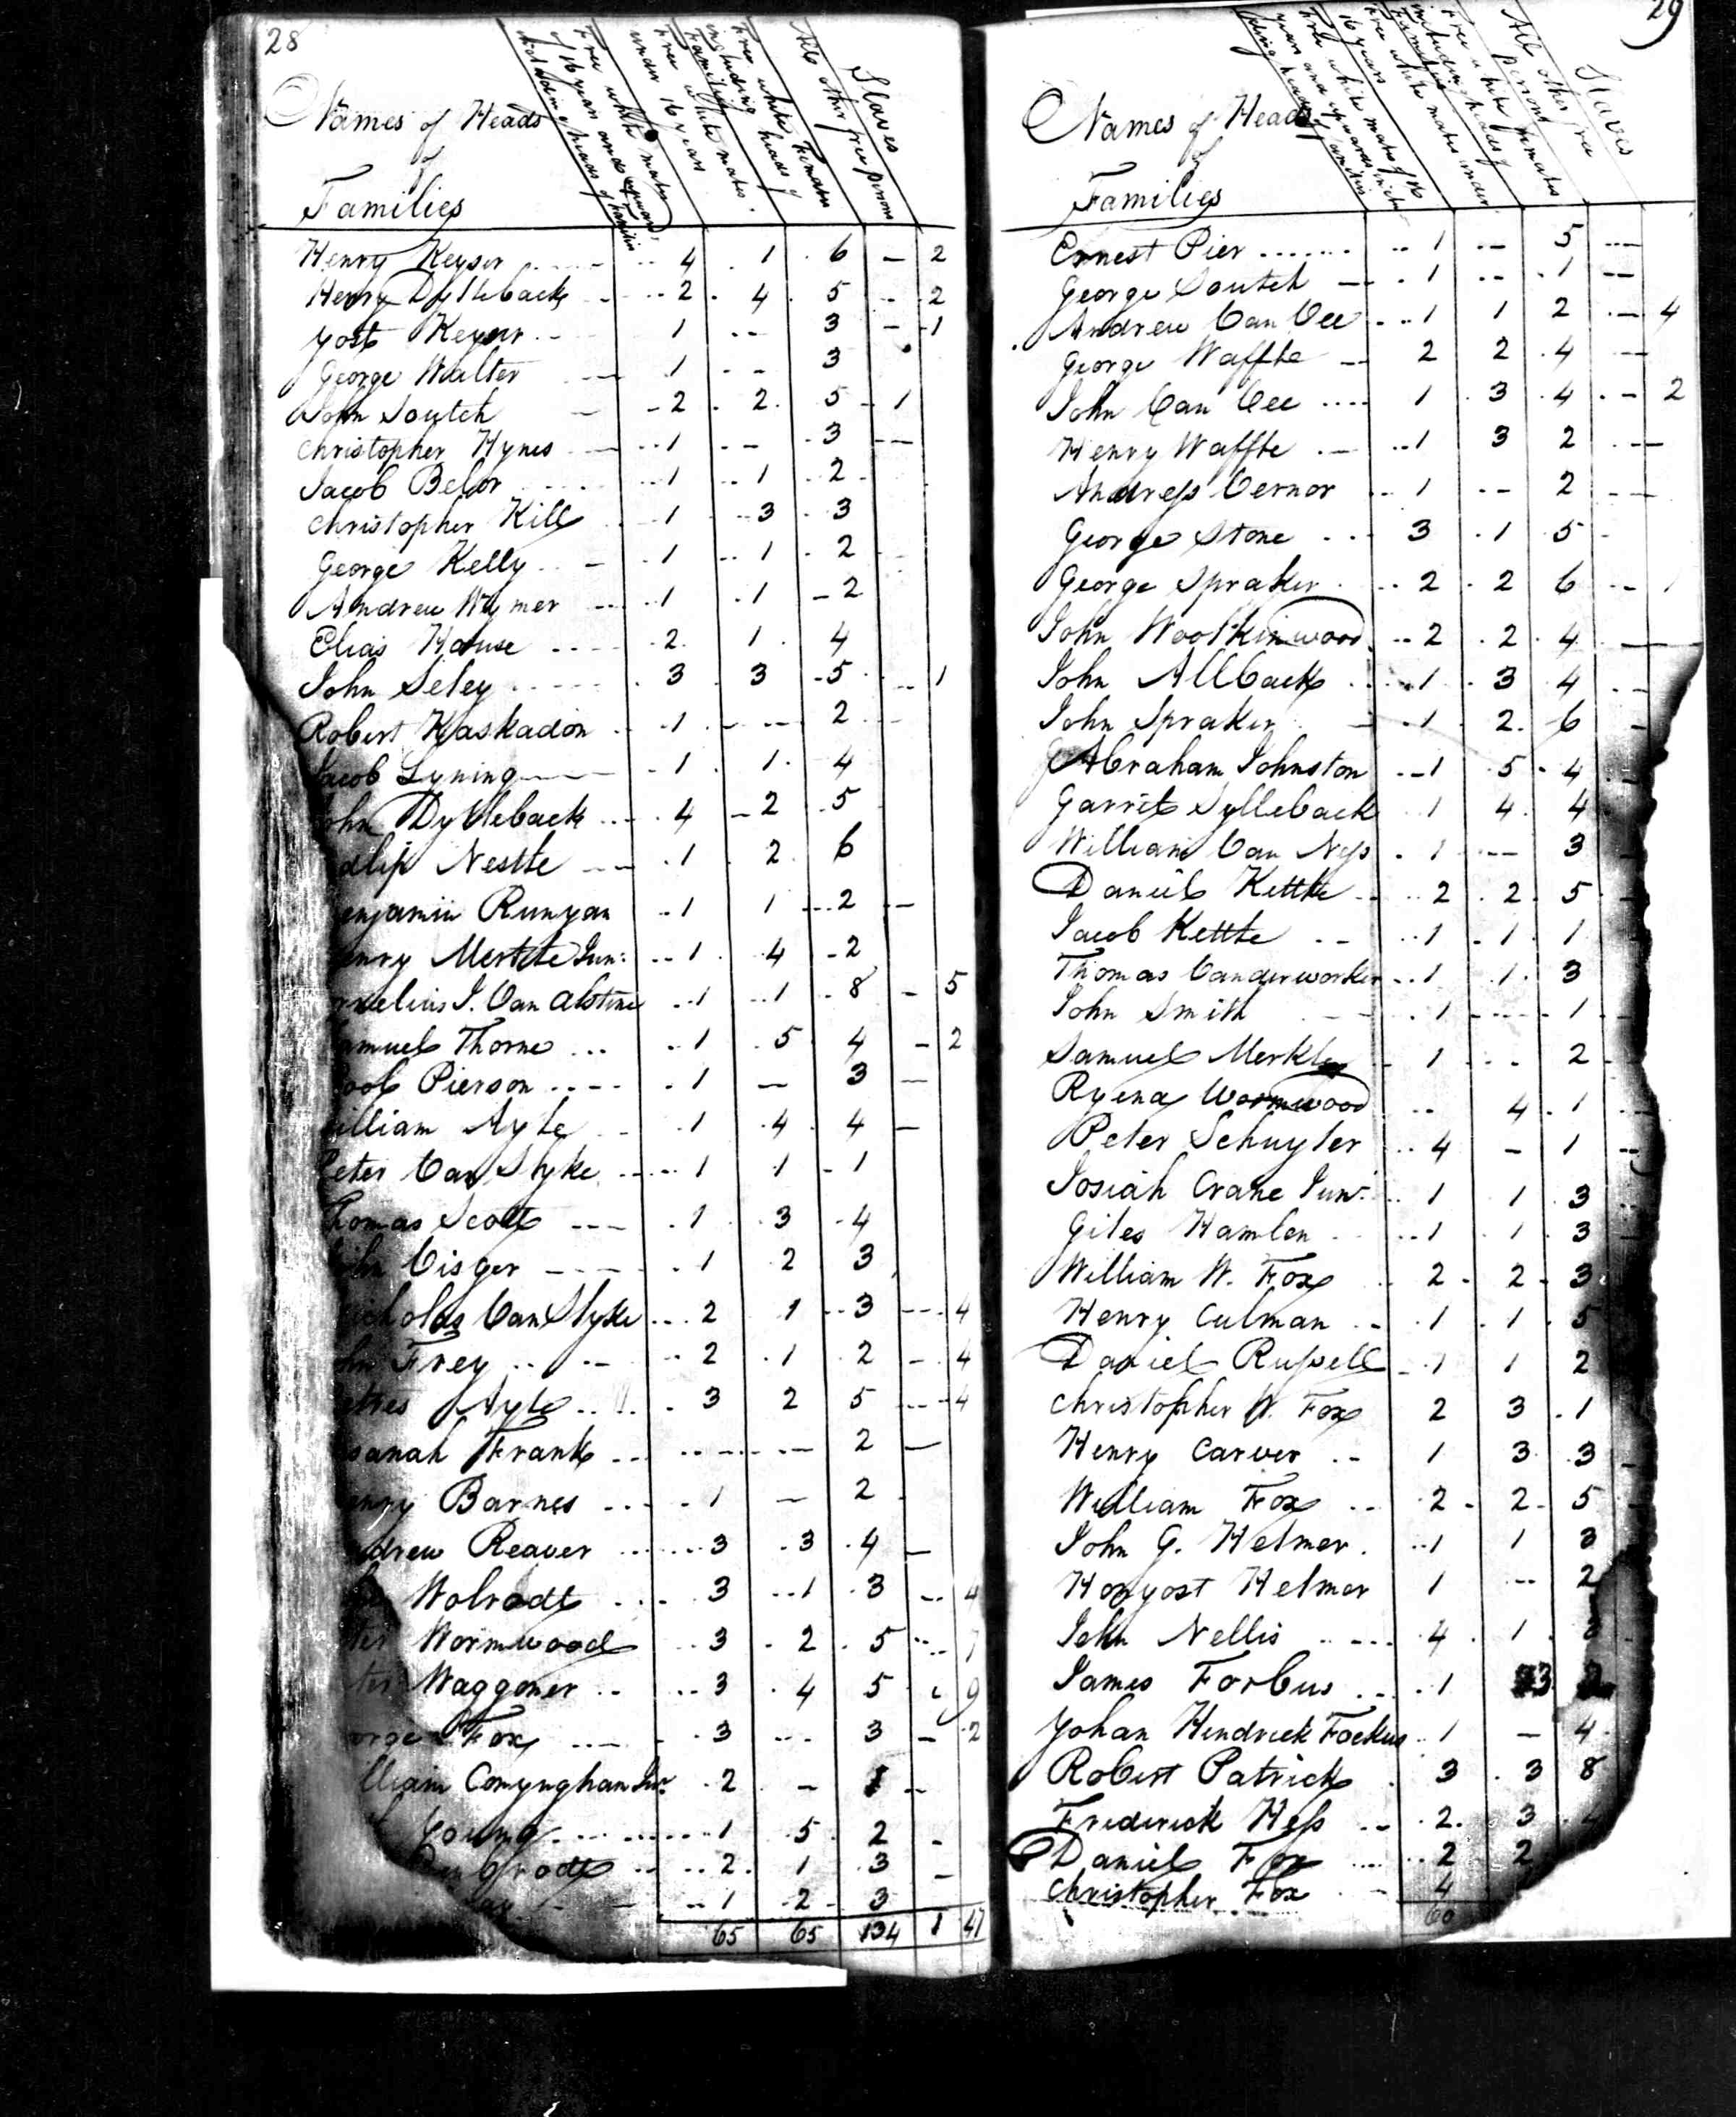 28
Names of Heads
of
Families
Free white males
of 16 years and upwards
including heads of families
Free white males
under 16 years
Free white Females
including heads of
Families
All other free persons
Slaves
Henry Keyser 4 1 6 — 2
Henry Dylleback 2 4 5 2
Yost Keyser 1 -- 3 — 1
George Walter 1 -- 3
John Soutch 2 2 5 1
Christopher Hynes 1 -- 3 --
Jacob Belor 1 1 2
Christopher Kill 1 3 3
George Kelly 1 1 2
Andrew Wymer 1 1 2
Elias House 2 1 4
John Seley 3 3 5 -- 1
Robert Haskadon 1 -- 2
Jacob Lyning 1 1 4
John Dylleback 4 2 5
Nestle 1 2 6
enjamin Runyan 1 1 2 --
enry Merkle Jun: 1 4 2
rnelius J. Van Alstine 1 1 8 — 5
amuel Thorne 1 5 4 — 2
Pierson 1 — 3 —
illiam Ayle 1 4 4 —
Peter Van Slyke 1 1 1
Thomas Scott 1 3 4
John Visger 1 2 3
icholas Van Slyke 2 1 3 --- 4
ohn Frey 2 1 2 — 4
Ayle 3 2 5 --- 4
sanah Frank -- -- 2 —
enry Barnes 1 — 2
ndrew Reaver 3 3 4 —
Wolradt 3 1 3 -- 4
ter Wormwood 3 2 5 -- 7
ter Waggoner 3 4 5 9
orge Fox 3 --- 3 — 2
lliam Conynghan Jur. 2 — 1 --
Young 1 5 2 -
2 1 3 -
1 2 3
65 65 134 1 47
29
Names of Heads
of
Families
Free white males of 16
years and upwards including
heads of families
Free white males under
16 years
Free white Females
including heads of
Families
All other free
persons
Slaves
Ernest Pier 1 -- 5 ---
George Soutch 1 -- 1 --
Andrew Van Vee 1 1 2 — 4
George Waffle 2 2 4 ---
John Van Vee 1 3 4 — 2
Henry Waffle 1 3 2 ---
Andress Vernor 1 -- 2 --
George Stone 3 1 5 -
George Spraker 2 2 6 --
John Woolkinwood 2 2 4
John Allback 1 3 4 --
John Spraker 1 2 6 -
Abraham Johnston 1 5 4 --
Garrit Sylleback 1 4 4
William Van Ness 1 -- 3
Daniel Kettle 2 2 5
Jacob Kettle 1 1 1
Thomas Vanderworker 1 1 3
John Smith 1 --- 1
Samuel Merkle 1 -- 2
Ryena Wormwood -- 4 1
Peter Schuyler 4 — 1 --
Josiah Crane Junr. 1 1 3
Giles Hamlen 1 1 3
William W. Fox 2 2 3
Henry Culman 1 1 5
Daniel Russell 1 1 2
Christopher W. Fox 2 3 1
Henry Carver 1 3 3
William Fox 2 2 5
John G. Helmer 1 1 3
Honyost Helmer 1 -- 2
John Nellis 4 1 3
James Forbus 1 3
Yohan Hendrick Fockus 1 — 4
Robert Patrick 3 3 8
Frederick Hess 2 3
Daniel Fox 2 2
Christopher Fox 4
60